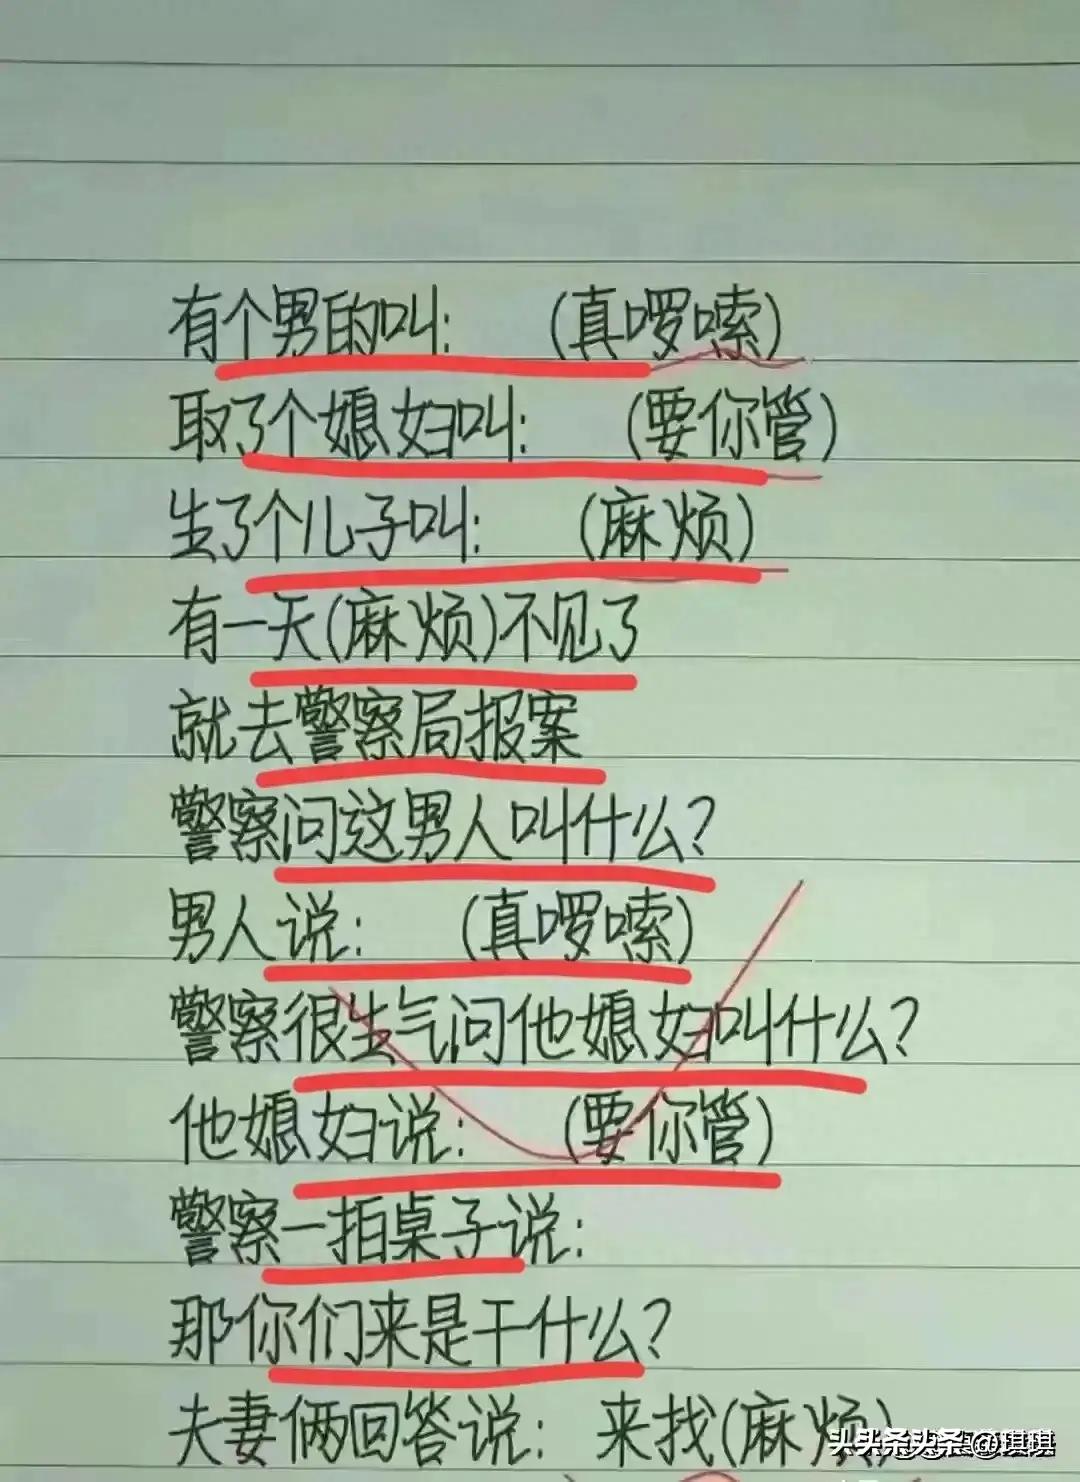 有个男的叫: (真啰嗦)
取了个媳妇叫: (要你管)
生了个儿子叫: (麻烦)
有一天(麻烦)不见了
就去警察局报案
警察问这男人叫什么?
男人说: (真啰嗦)
警察很生气问他媳妇叫什么?
他媳妇说: (要你管)
警察一拍桌子说:
那你们来是干什么?
夫妻俩回答说: 来找(麻烦)
头条@琪琪